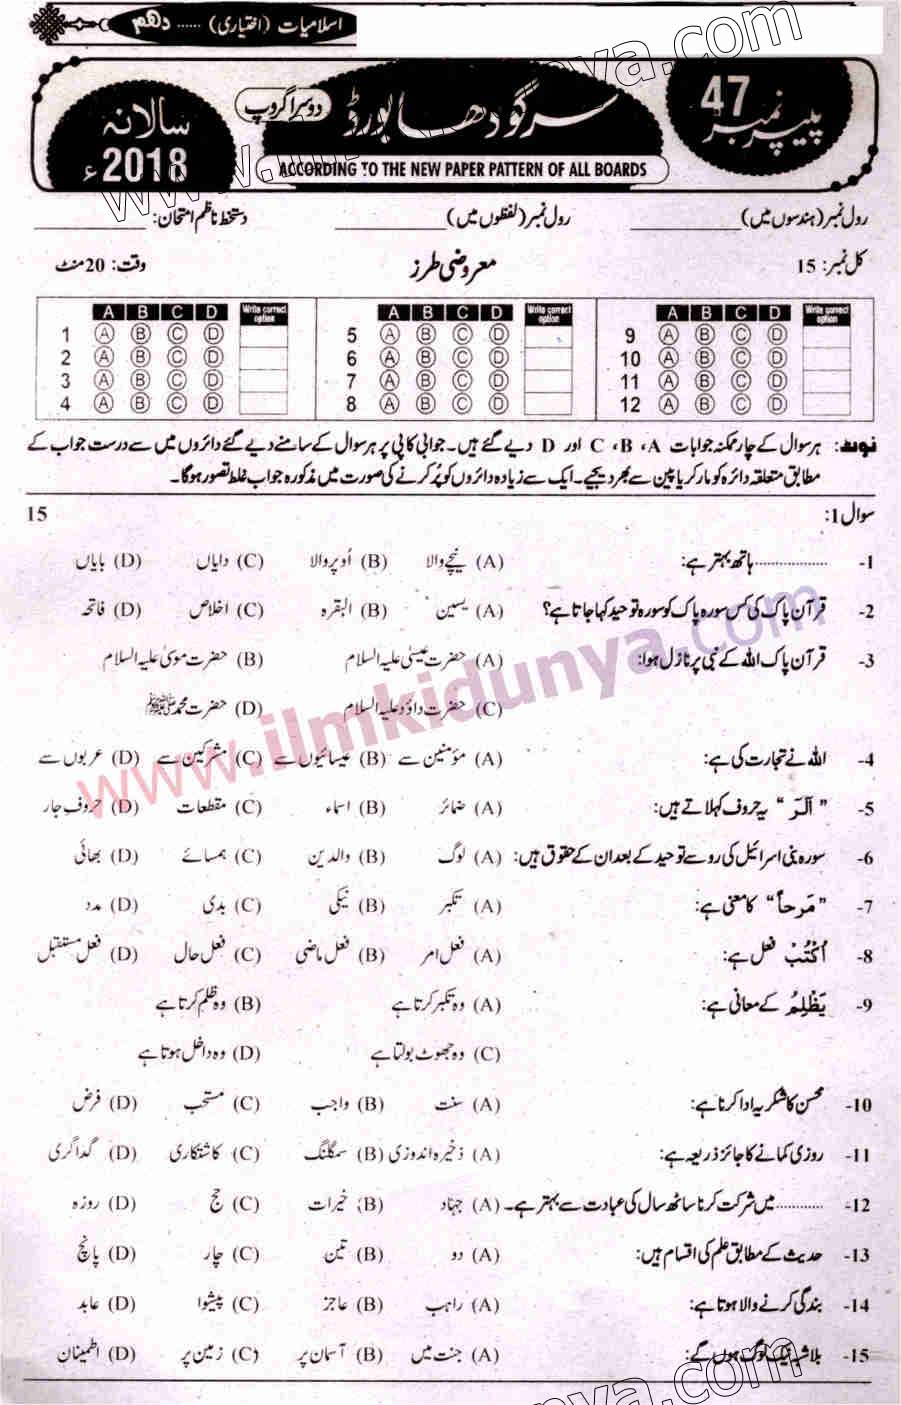 اسلامیات (اختیاری) ...... دہم
پیپر نمبر 47
سرگودھا بورڈ
دوسرا گروپ
سالانہ 2018ء
ACCORDING TO THE NEW PAPER PATTERN OF ALL BOARDS
رول نمبر (ہندسوں میں) ____________ رول نمبر (لفظوں میں) ____________ دستخط ناظم امتحان: ____________
کل نمبر: 15 معروضی طرز وقت: 20 منٹ
A B C D Write correct option A B C D Write correct option A B C D Write correct option
1 A B C D 5 A B C D 9 A B C D
2 A B C D 6 A B C D 10 A B C D
3 A B C D 7 A B C D 11 A B C D
4 A B C D 8 A B C D 12 A B C D
نوٹ: ہر سوال کے چار ممکنہ جوابات A، B، C اور D دیے گئے ہیں۔ جوابی کاپی پر ہر سوال کے سامنے دیے گئے دائروں میں سے درست جواب کے
مطابق متعلقہ دائرہ کو مارکر یا پین سے بھر دیجیے۔ ایک سے زیادہ دائروں کو پُر کرنے کی صورت میں مذکورہ جواب غلط تصور ہوگا۔
سوال 1: 15
1- .................. ہاتھ بہتر ہے: (A) نیچے والا (B) اُوپر والا (C) دایاں (D) بایاں
2- قرآن پاک کی کس سورہ پاک کو سورہ توحید کہا جاتا ہے؟ (A) یسین (B) البقرہ (C) اخلاص (D) فاتحہ
3- قرآن پاک اللہ کے نبی پر نازل ہوا: (A) حضرت عیسیٰ علیہ السلام (B) حضرت موسیٰ علیہ السلام
(C) حضرت داؤد علیہ السلام (D) حضرت محمد ﷺ
4- اللہ نے تجارت کی ہے: (A) مؤمنین سے (B) عیسائیوں سے (C) مشرکین سے (D) عربوں سے
5- "الٓرٰ" یہ حروف کہلاتے ہیں: (A) ضمائر (B) اسماء (C) مقطعات (D) حروف جار
6- سورہ بنی اسرائیل کی رو سے توحید کے بعد ان کے حقوق ہیں: (A) لوگ (B) والدین (C) ہمسائے (D) بھائی
7- "مَرحاً" کا معنی ہے: (A) تکبر (B) نیکی (C) بدی (D) مدد
8- اُکْتُبْ فعل ہے: (A) فعل امر (B) فعل ماضی (C) فعل حال (D) فعل مستقبل
9- یَظْلِمُ کے معانی ہے: (A) وہ تکبر کرتا ہے (B) وہ ظلم کرتا ہے
(C) وہ جھوٹ بولتا ہے (D) وہ داخل ہوتا ہے
10- محسن کا شکریہ ادا کرنا ہے: (A) سنت (B) واجب (C) مستحب (D) فرض
11- روزی کمانے کا جائز ذریعہ ہے: (A) ذخیرہ اندوزی (B) سمگلنگ (C) کاشتکاری (D) گداگری
12- ............ میں شرکت کرنا ساٹھ سال کی عبادت سے بہتر ہے۔ (A) جہاد (B) خیرات (C) حج (D) روزہ
13- حدیث کے مطابق علم کی اقسام ہیں: (A) دو (B) تین (C) چار (D) پانچ
14- بندگی کرنے والا ہوتا ہے: (A) راہب (B) عاجز (C) پیشوا (D) عابد
15- بلاشبہ نیک لوگ ہوں گے: (A) جنت میں (B) آسمان پر (C) زمین پر (D) اطمینان
www.ilmkidunya.com